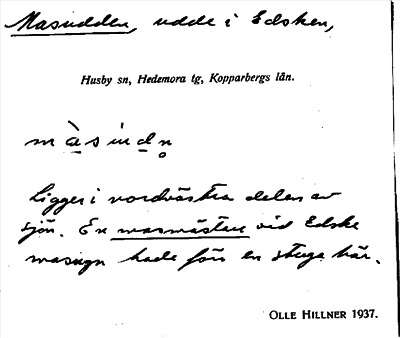 Masudden, udde i Edsken,
Husby sn, Hedemora tg, Kopparbergs län.
Ligger i nordvästra delen av
sjön. En masmästare vid Edske
masugn hade förr en stuga här.
OLLE HILLNER 1937.